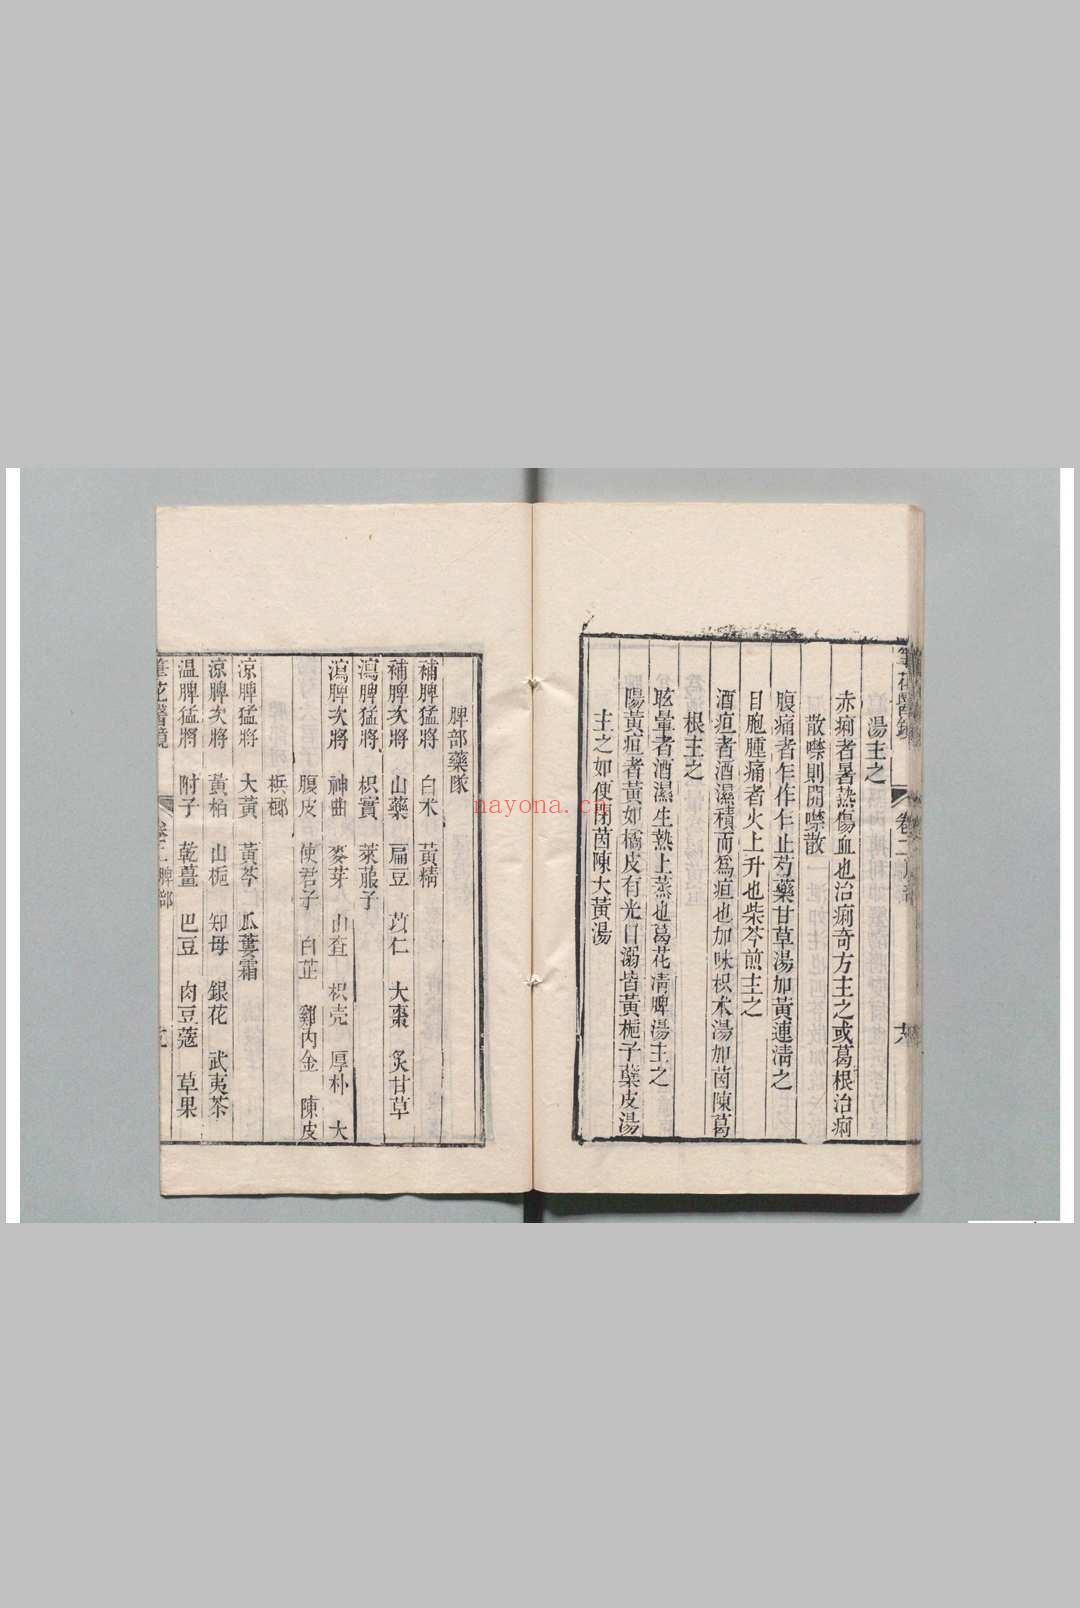 湯主之
赤痢者暑熱傷血也治痢奇方主之或葛根治痢
散噤則開噤散
腹痛者乍作乍止芍藥甘草湯加黃連清之
目胞腫痛者火上升也柴芩煎主之
酒疸者酒濕積而為疸也加味枳朮湯加茵陳葛
根主之
眩暈者酒濕生熱上蒸也葛花清脾湯主之
陽黃疸者黃如橘皮有光目溺皆黃梔子蘗皮湯
主之如便閉茵陳大黃湯
脾部藥隊
補脾猛將 白朮 黃精
補脾次將 山藥 扁豆 苡仁 大棗 炙甘草
瀉脾猛將 枳實 萊菔子
瀉脾次將 神曲 麥芽 山査 枳壳 厚朴 大
腹皮 使君子 白芷 雞內金 陳皮
檳榔
涼脾猛將 大黃 黃芩 瓜蔞霜
涼脾次將 黃柏 山梔 知母 銀花 武夷茶
温脾猛將 附子 乾薑 巴豆 肉豆蔻 草果
筆花醫鏡 卷二 脾部
nayona.cn